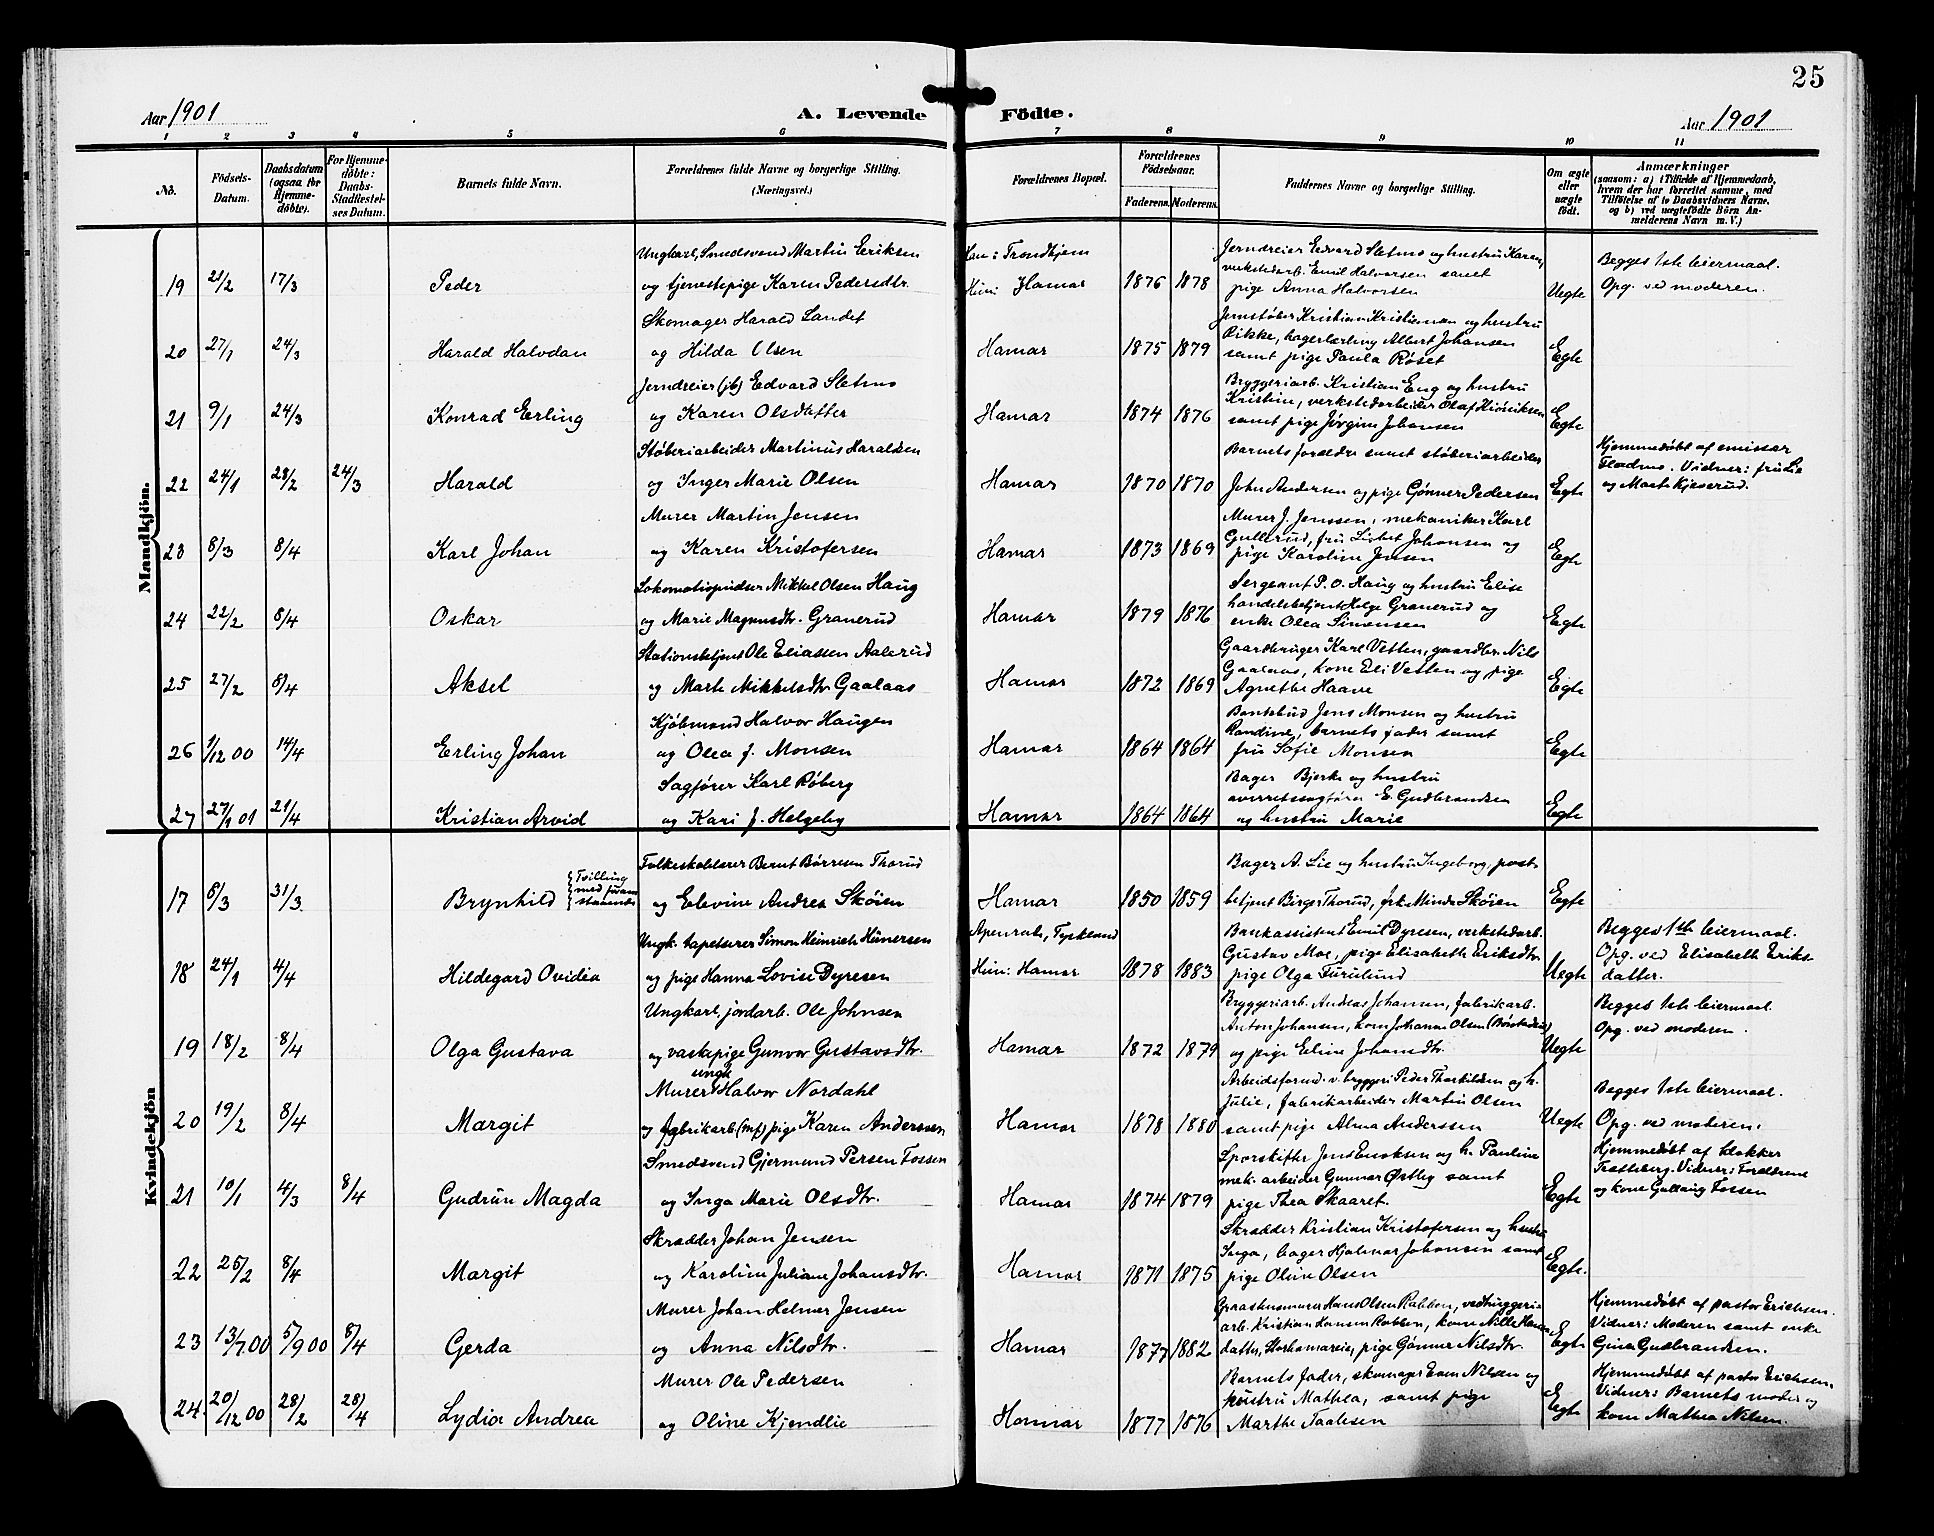 25
Aar 1901
A. Levende Födte.
Aar 1901
1 2 3 4 5 6 7 8 9 10 11
No.
Födsels-Datum.
Daabsdatum (ogsaa for Hjemmedöbte).
For Hjemmedöbte: Daabs-Stadfæstelses Datum.
Barnets fulde Navn.
Forældrenes fulde Navne og borgerlige Stilling. (Næringsvei.)
Forældrenes Bopæl.
Forældrenes Födselsaar.
Faderens. Moderens.
Faddernes Navne og borgerlige Stilling.
Om ægte eller uægte födt.
Anmærkninger
(saasom: a) i Tilfælde af Hjemmedaab, hvem der har forrettet samme, med Tilföielse af to Daabsvidners Navne, og b) ved uægtefödte Börn Anmelderens Navn m. V.)
Mandkjön.
19 21/2 17/3 Peder
Ungkarl, Smedsvend Martin Eriksen
og tjenestepige Karen Pedersdtr.
Han: Trondhjem
Hun: Hamar 1876 1878
Jerndreier Edvard Sletmo og hustru Karen,
verkstedarb. Emil Halvorsen samt
pige Anna Halvorsen
Uegte
Begges 1ste leiermaal.
Opg. ved moderen.
20 27/1 24/3 Harald Halvdan
Skomager Harald Landet
og Hilda Olsen
Hamar 1875 1879
Jernstøber Kristian Kristiansen og hustru
Rikke, bagerlærling Albert Johansen
samt pige Paula Røset
Egte
21 9/1 24/3 Konrad Erling
Jerndreier (jb) Edvard Sletmo
og Karen Olsdatter
Hamar 1874 1876
Bryggeriarb. Kristian Eng og hustru
Kristine, verkstedarbeider Olaf Henriksen
samt pige Jørgine Johansen
Egte
22 24/1 28/2 24/3 Harald
Støberiarbeider Martinus Haraldsen
og Inger Marie Olsen
Hamar 1870 1870
Barnets forældre samt støberiarbeider
John Andersen og pige Gønner Pedersen
Egte
Hjemmedøbt af emissær
Flodmo. Vidner: fru Lie
og Marte Kjeverud.
23 8/3 8/4 Karl Johan
Murer Martin Jensen
og Karen Kristofersen
Hamar 1873 1869
Murer J. Jenssen, mekaniker Karl
Gullerud, fru Lisbet Johansen og
pige Karoline Jensen
Egte
24 22/2 8/4 Oskar
Lokomotivpudser Mikkel Olsen Haug
og Marie Magnusdtr. Granerud
Hamar 1879 1876
Sergeant P. O. Haug og hustru Elise
handelsbetjent Helge Granerud og
enke Olea Simensen
Egte
25 27/2 8/4 Aksel
Stationsbetjent Ole Eliassen Aalerud
og Marte Mikkelsdtr Gaalaas
Hamar 1872 1869
Gaardbruger Karl Vetten, gaardbr. Nils
Gaalaas, kone Eli Vetten og pige
Agnethe Haave
Egte
26 1/12 00 14/4 Erling Johan
Kjøbmand Halvor Haugen
og Olea f. Monsen
Hamar 1864 1864
Bankbud Jens Monsen og hustru
Randine, barnets fader samt
fru Sofie Monsen
Egte
27 27/1 01 21/4 Kristian Arvid
Sagfører Karl Røberg
og Kari f. Helgeby
Hamar 1864 1864
Bager Bjerke og hustru
overretssagfører E. Gudbrandsen
og hustru Marie
Egte
Kvindekjön
17 8/3 31/3 Brynhild
Tvilling
Folkeskolelærer Bernt Børresen Thorud
og Elevine Andrea Skøien
Hamar 1850 1859
Bager A. Lie og hustru Ingeborg, post-
betjent Birger Thorud, frk. Minda Skøien
Egte
18 24/1 4/4 Hildegard Ovidia
Ungk. tapetserer Simon Heinrich Heinersen
og pige Hanna Lovise Dyresen
Apenrade, Tyskland
Hun: Hamar 1878 1883
Bankassistent Emil Dyresen, verkstedarb.
Gustav Moe, pige Elisabeth Eriksdtr.
pige Olga Furulund
Uegte
Begges 1ste leiermaal.
Opg. ved Elisabeth Eriks-
datter.
19 18/2 8/4 Olga Gustava
Ungkarl, jordarb. Ole Johnsen
og vaskepige Gunvor Gustavsdtr.
Hamar 1872 1879
Bryggeriarb. Andreas Johansen, fabrikarb.
Anton Johansen, kone Johanne Olsen
og pige Eline Johansdtr.
Uegte
Begges 1ste leiermaal.
Opg. ved moderen.
20 19/2 8/4 Margit
Murer ungk. Halvor Nordahl
og fabrikarb. (mf) pige Karen Anderssen
Hamar 1878 1880
Arbeidsformd. v. bryggeri Peder Thorkildsen og h.
Julie, fabrikarbeider Martin Olsen
samt pige Alma Anderssen
Uegte
Begges 1ste leiermaal.
Opg. ved moderen.
21 10/1 4/3 8/4 Gudrun Magda
Smedsvend Gjermund Persen Fossen
og Inga Marie Olsdtr.
Hamar 1874 1879
Sporskifter Jens Eriksen og h. Pauline
mek. arbeider Gunnar Østby samt
pige Thea Skaaret.
Egte
Hjemmedøbt af klokker
Trætteberg. Vidner: Forældrene
og kone Gullaug Fossen
22 25/2 8/4 Margit
Skrædder Johan Jensen
og Karoline Juliane Johansdtr.
Hamar 1871 1875
Skrædder Kristian Kristofersen og hustru
Inga, bager Hjalmar Johansen samt
pige Oline Olsen
Egte.
23 13/7 00 5/9 00 8/4 Gerda
Murer Johan Helmer Jensen
og Anna Nilsdtr.
Hamar 1877 1882
Graastensmurer Hans Olsen Rabben, vedhuggeri-
arb. Kristian Hansen Rabben, kone Nille Hans-
datter, Storhamareie, pige Gønner Nilsdtr.
Egte
Hjemmedøbt af pastor Erichsen.
Vidner: Moderen samt enke
Gina Gudbrandsen.
24. 20/12 00 28/2 28/4 Lydia Andrea
Murer Ole Pedersen
og Oline Kjendlie
Hamar 1877 1876
Barnets fader, skomager Even Nilsen og
hustru Mathea, samt pige
Marthe Paalsen
Egte
Hjemmedøbt af pastor Erichsen.
Vidner: Barnets moder og
kone Mathea Nilsen.